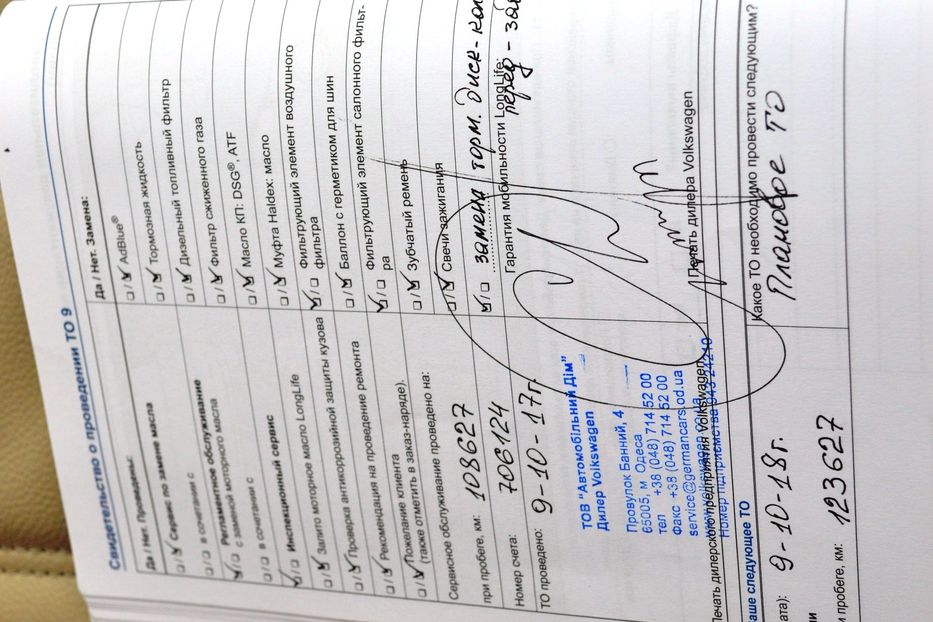 Свидетельство о проведении ТО 9
Да / Нет. Проведены:
☐/☑ Сервис по замене масла
☐/☐ в сочетании с
Регламентное обслуживание
☑/☐ с заменой моторного масла
☐/☐ в сочетании с
☑/☐ Инспекционный сервис
☐/☑ Залито моторное масло LongLife
☐/☑ Проверка антикоррозийной защиты кузова
☐/☑ Рекомендация на проведение ремонта
Пожелание клиента
☐/☑ (также отметить в заказ-наряде).
Сервисное обслуживание проведено на:
при пробеге, км: 108627
Номер счета: 706124
ТО проведено: 9-10-17г.
ТОВ "Автомобільний Дім"
Дилер Volkswagen
Провулок Банний, 4
65005, м Одеса
тел +38 (048) 714 52 00
Факс +38 (048) 714 52 00
service@germancars.od.ua
Номер підприємства
Печать дилерского предприятия Volkswagen
Да / Нет. Замена:
☐/☑ AdBlue®
☐/☑ Тормозная жидкость
☐/☑ Дизельный топливный фильтр
☐/☑ Фильтр сжиженного газа
☐/☑ Масло КП: DSG®, ATF
☐/☑ Муфта Haldex: масло
Фильтрующий элемент воздушного
☑/☐ фильтра
☐/☑ Баллон с герметиком для шин
Фильтрующий элемент салонного фильт-
☑/☐ ра
☐/☑ Зубчатый ремень
☐/☑ Свечи зажигания
☑/☐ замена торм. диск-кол
перед -
Гарантия мобильности LongLife:
Печать дилера Volkswagen
аше следующее ТО
ата): 9-10-18г.
ли
и пробеге, км: 123627
Какое ТО необходимо провести следующим?
Плановое ТО